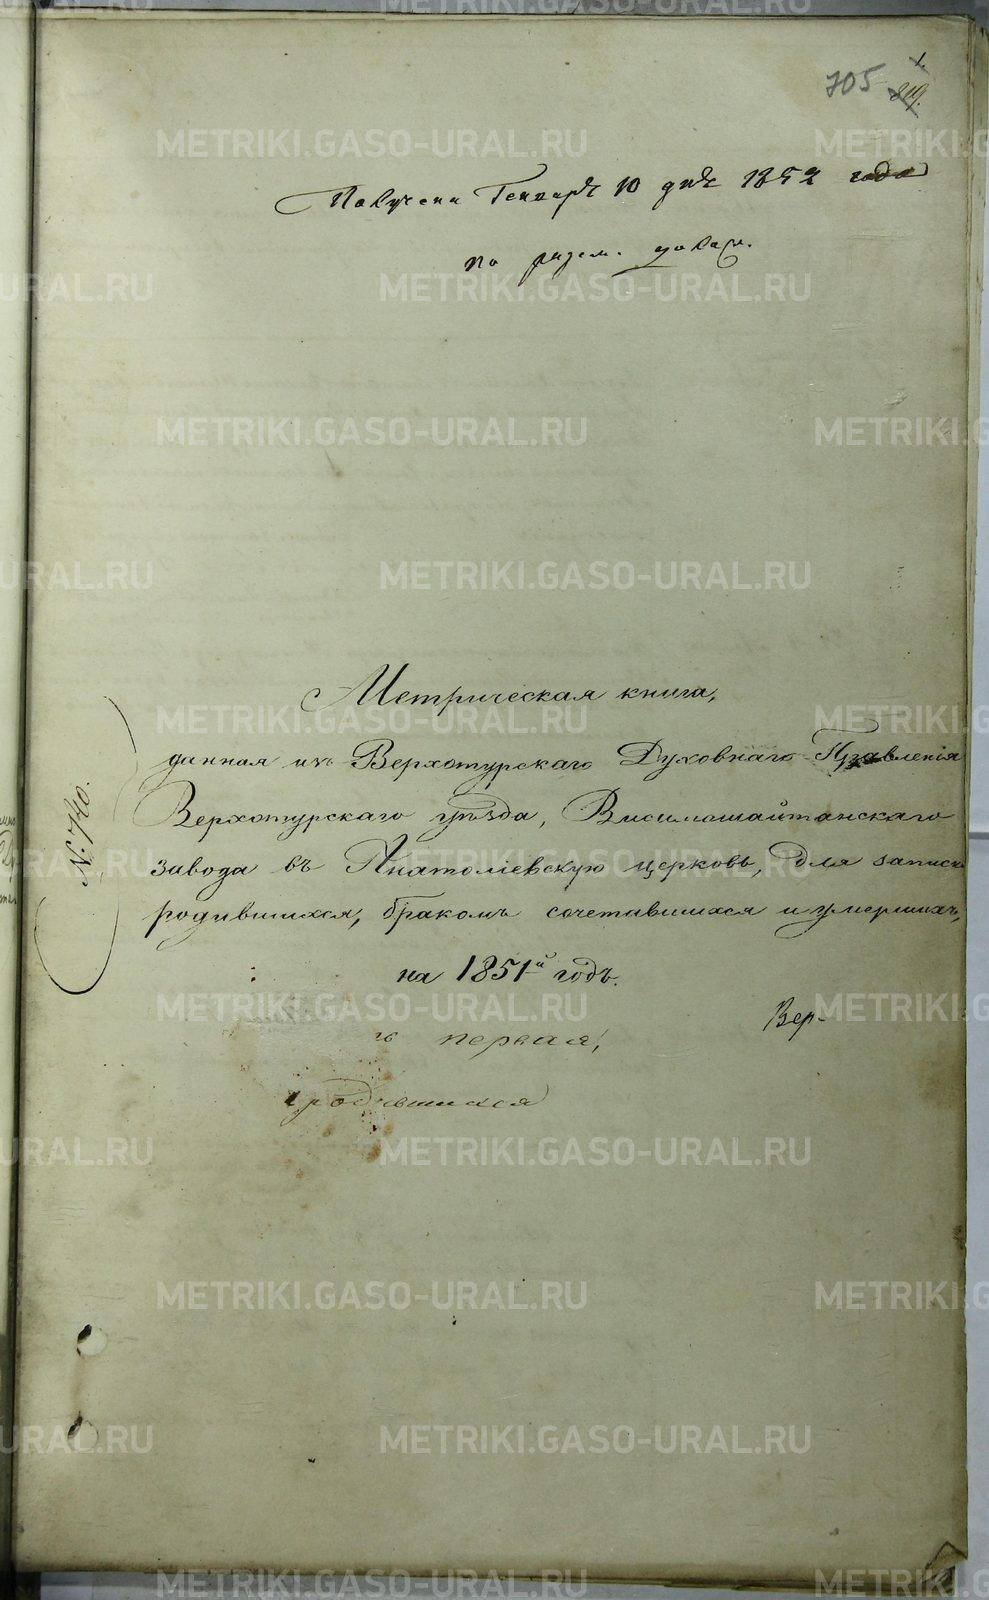 705 819.
Получена Генваря 10 дня 1852 года
по
Метрическая книга,
данная изъ Верхотурскаго Духовнаго Правленія
Верхотурскаго уѣзда, Висимошайтанскаго
завода въ Анатоліевскую церковь, для записи
родившихся, бракомъ сочетавшихся и умершихъ,
на 1851й годъ.
Вер-
первая,
родившихся
№ 740.
METRIKI.GASO-URAL.RU